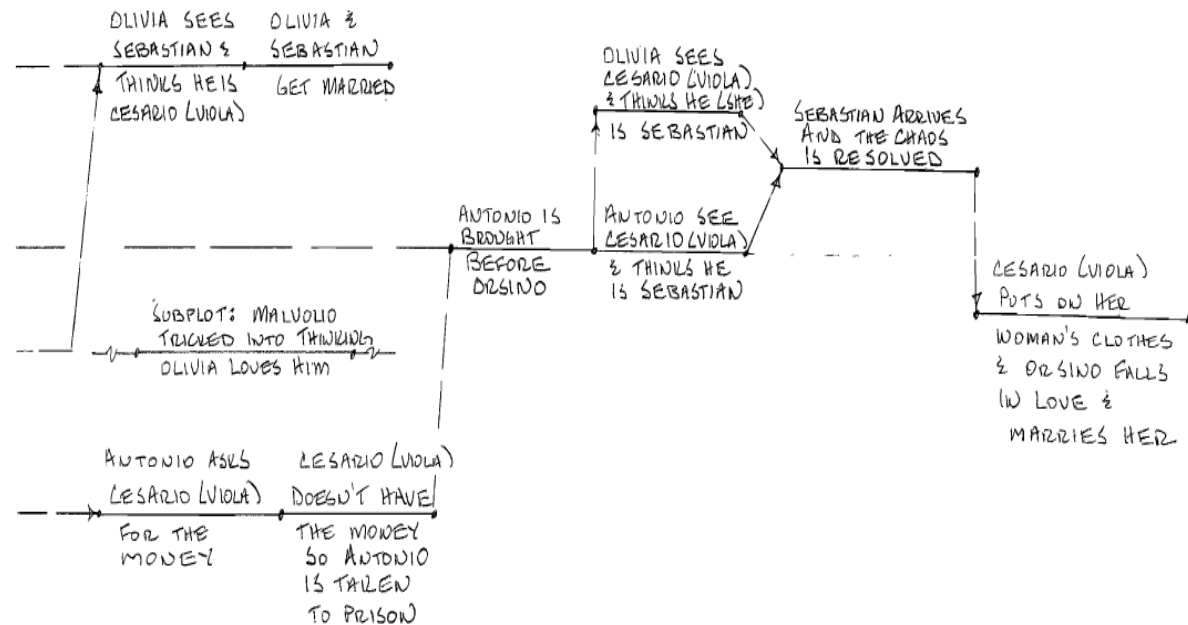 OLIVIA SEES
SEBASTIAN &
THINKS HE IS
CESARIO (VIOLA)
OLIVIA &
SEBASTIAN
GET MARRIED
OLIVIA SEES
CESARIO (VIOLA)
& THINKS HE (SHE)
IS SEBASTIAN
SEBASTIAN ARRIVES
AND THE CHAOS
IS RESOLVED
ANTONIO IS
BROUGHT
BEFORE
ORSINO
ANTONIO SEE
CESARIO (VIOLA)
& THINKS HE
IS SEBASTIAN
CESARIO (VIOLA)
PUTS ON HER
WOMAN'S CLOTHES
& ORSINO FALLS
IN LOVE &
MARRIES HER
SUBPLOT: MALVOLIO
TRICKED INTO THINKING
OLIVIA LOVES HIM
ANTONIO ASKS
CESARIO (VIOLA)
FOR THE
MONEY
CESARIO (VIOLA)
DOESN'T HAVE
THE MONEY
SO ANTONIO
IS TAKEN
TO PRISON